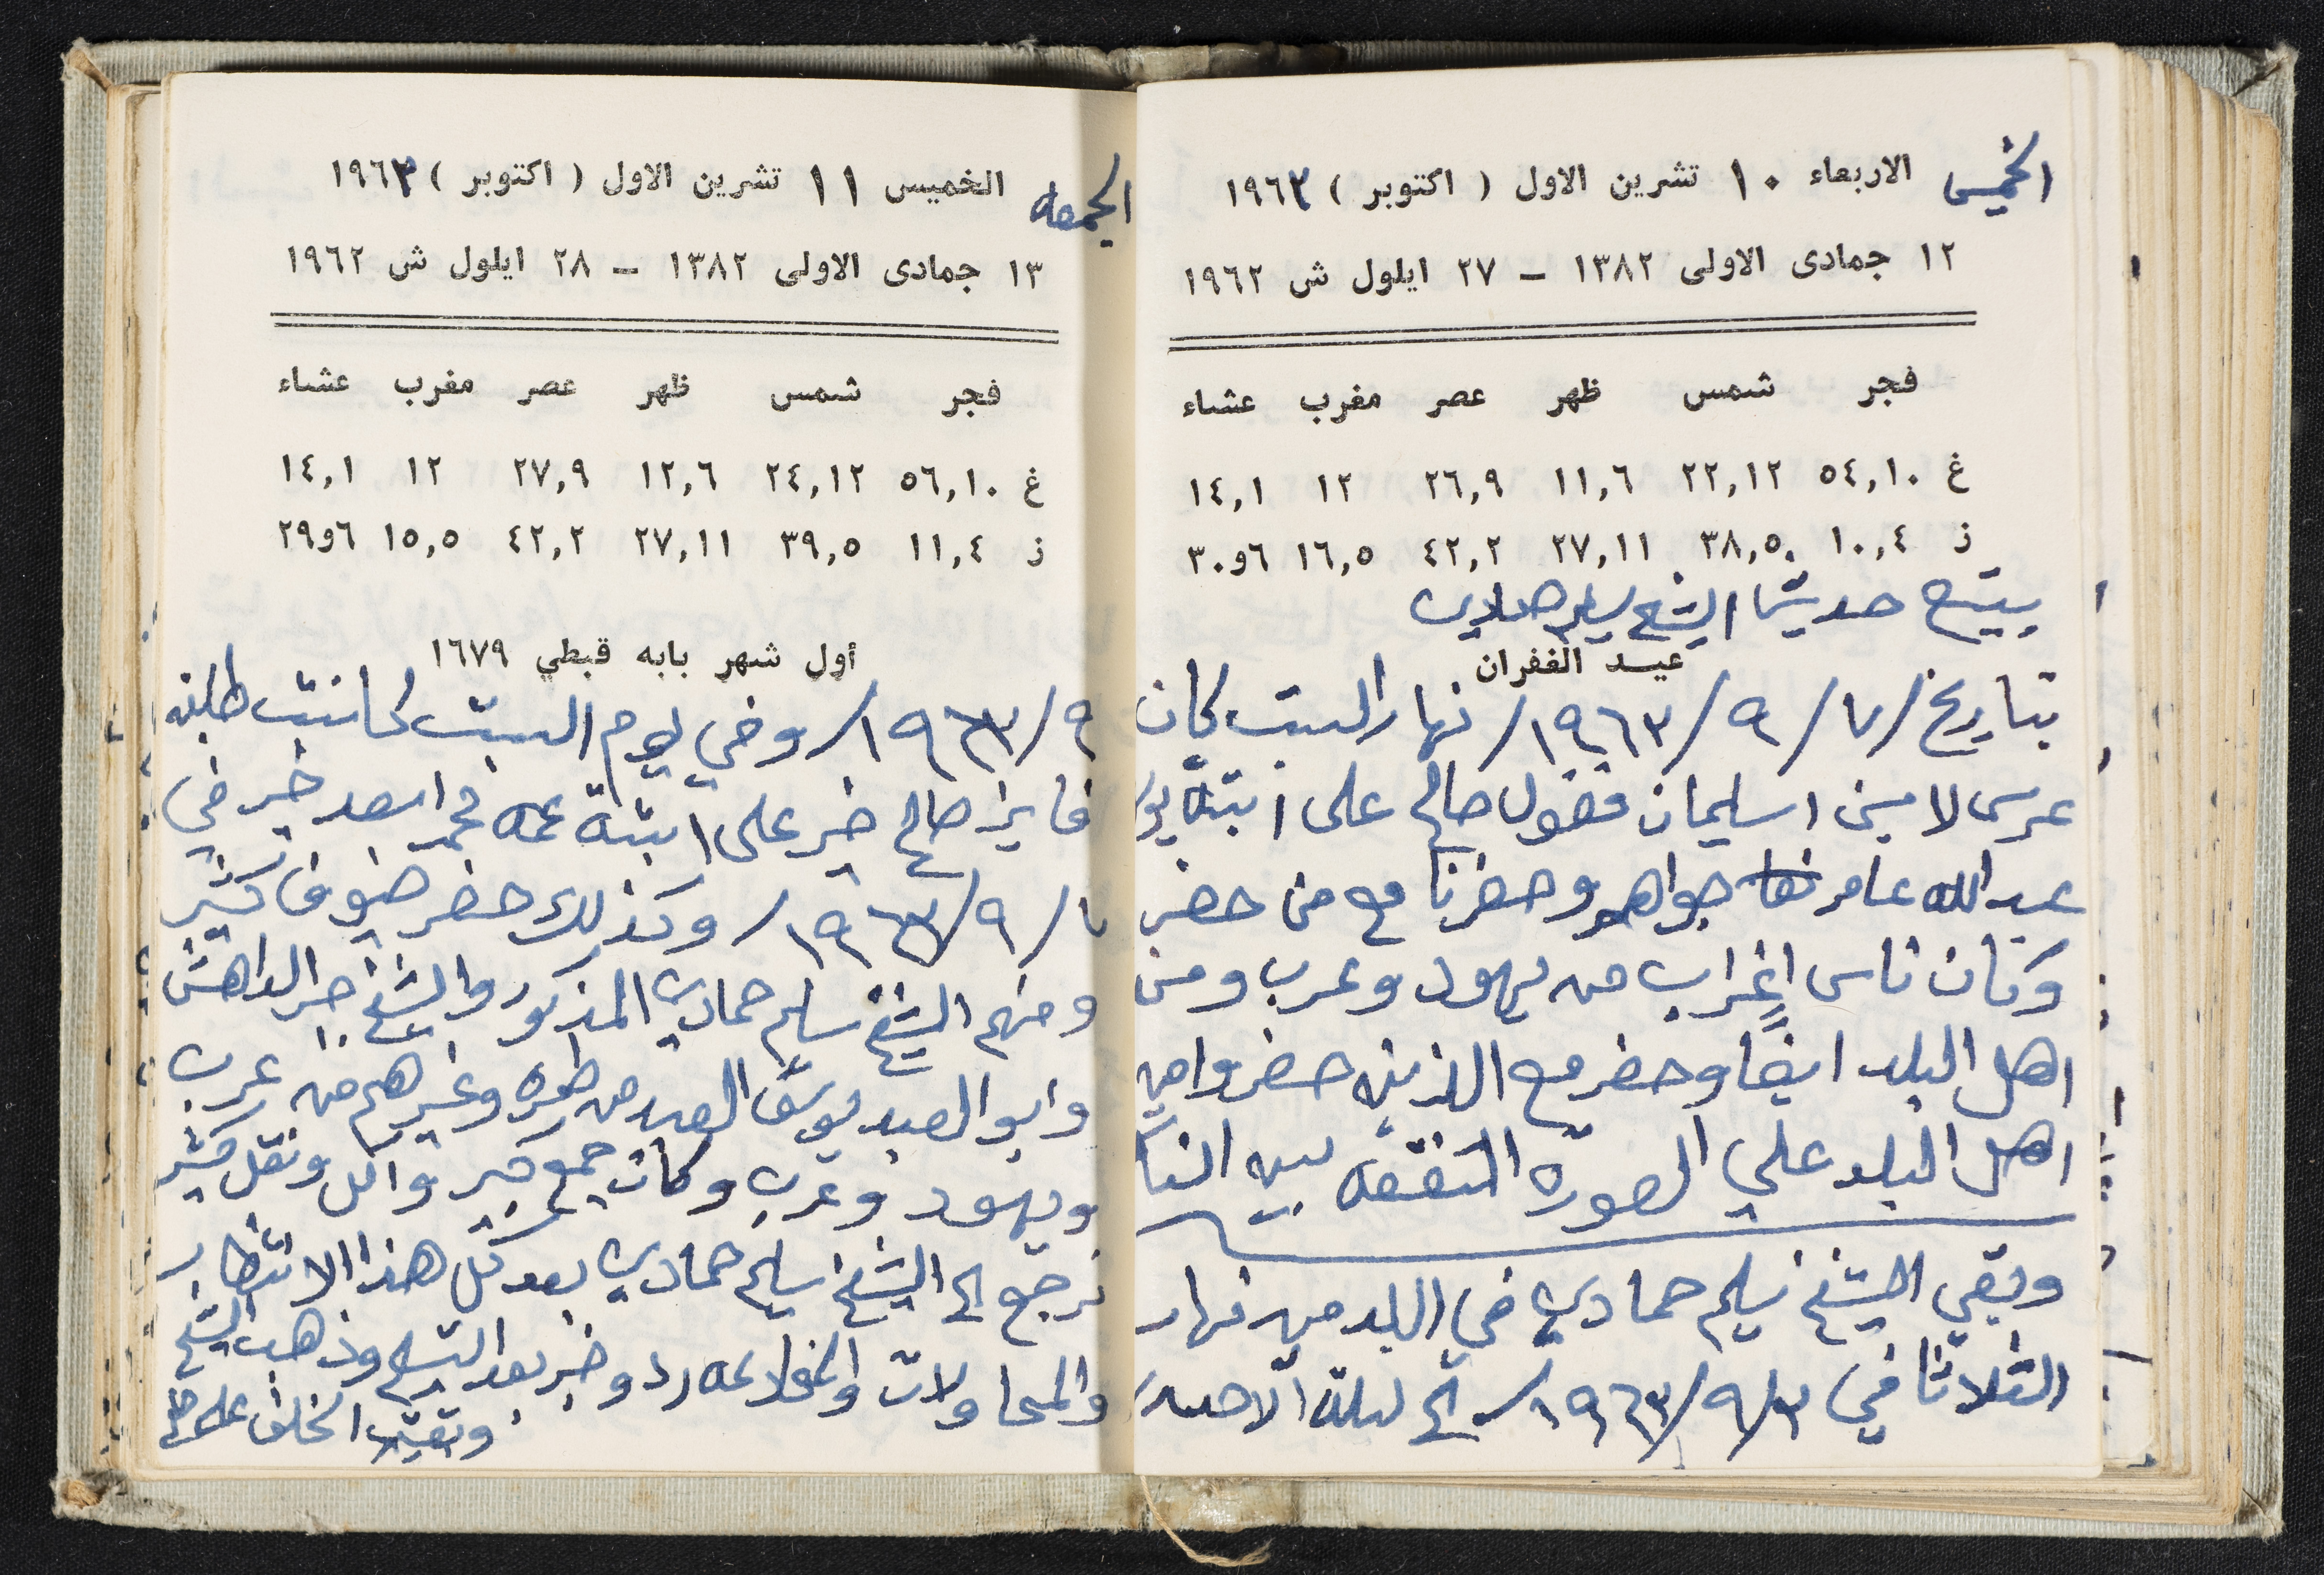 الخميس الاربعاء ١٠ تشرين الاول ( اكتوبر ) ١٩٦٣
١٢ جمادى الاولى ١٣٨٢ – ٢٧ ايلول ش ١٩٦٢
فجر شمس ظهر عصر مغرب عشاء
غ ٥٤,١٠ ٢٢,١٢ ١١,٦ ٢٦,٩ ١٢ ١٤,١
ز ١٠,٤ ٣٨,٥ ٢٧,١١ ٤٢,٢ ١٦,٥ ٦و٣٠
يتبع حديث الشيخ سليم حمادي
عيد الغفران
بتاريخ /٧/٩/١٩٦٣/ نهار السبت كان
عرس لامين اسليمان فضول صالح على ابنة
عبدالله عامر جواهر وحضرنا مع من حضر
وكان ناس اغراب من يهود وعرب ومن
اهل البلد ايضًا وحضر مع الذين حضروا من
اهل البلد على الصورة المتفقه بين النا
وبقي الشيخ سليم حمادي في البلد من نهار
الثلاثا في ٣/٩/١٩٦٣/ الى ليلة الاحد
الجمعه الخميس ١١ تشرين الاول ( اكتوبر ) ١٩٦٣
١٣ جمادى الاولى ١٣٨٢ – ٢٨ ايلول ش ١٩٦٢
فجر شمس ظهر عصر مغرب عشاء
غ ٥٦,١٠ ٢٤,١٢ ١٢,٦ ٢٧,٩ ١٢ ١٤,١
ز ١١,٤ ٣٩,٥ ٢٧,١١ ٤٢,٢ ١٥,٥ ٦و٢٩
أول شهر بابه قبطي ١٦٧٩
٩/١٩٦٣/ وفي يوم السبت كانت طلبة
فايز صالح خير على ابنة عمه محمد اسعد خير في
٧/٩/١٩٦٣/ وكذلك حضر ضيوف كثير
ومنهم الشيخ سليم حمادي المذكور والشيخ الداهش
وابو العبد يوسف العبد من طمره وغيرهم من عرب
ويهود وعرب وكان جمع كبير واكل ونقل كثير
نرجع الى الشيخ سليم حمادي بعد كل هذا الانتظار
والمحاولات رد وخبر بعد وذهب الشيخ
وبقيت الخلف على